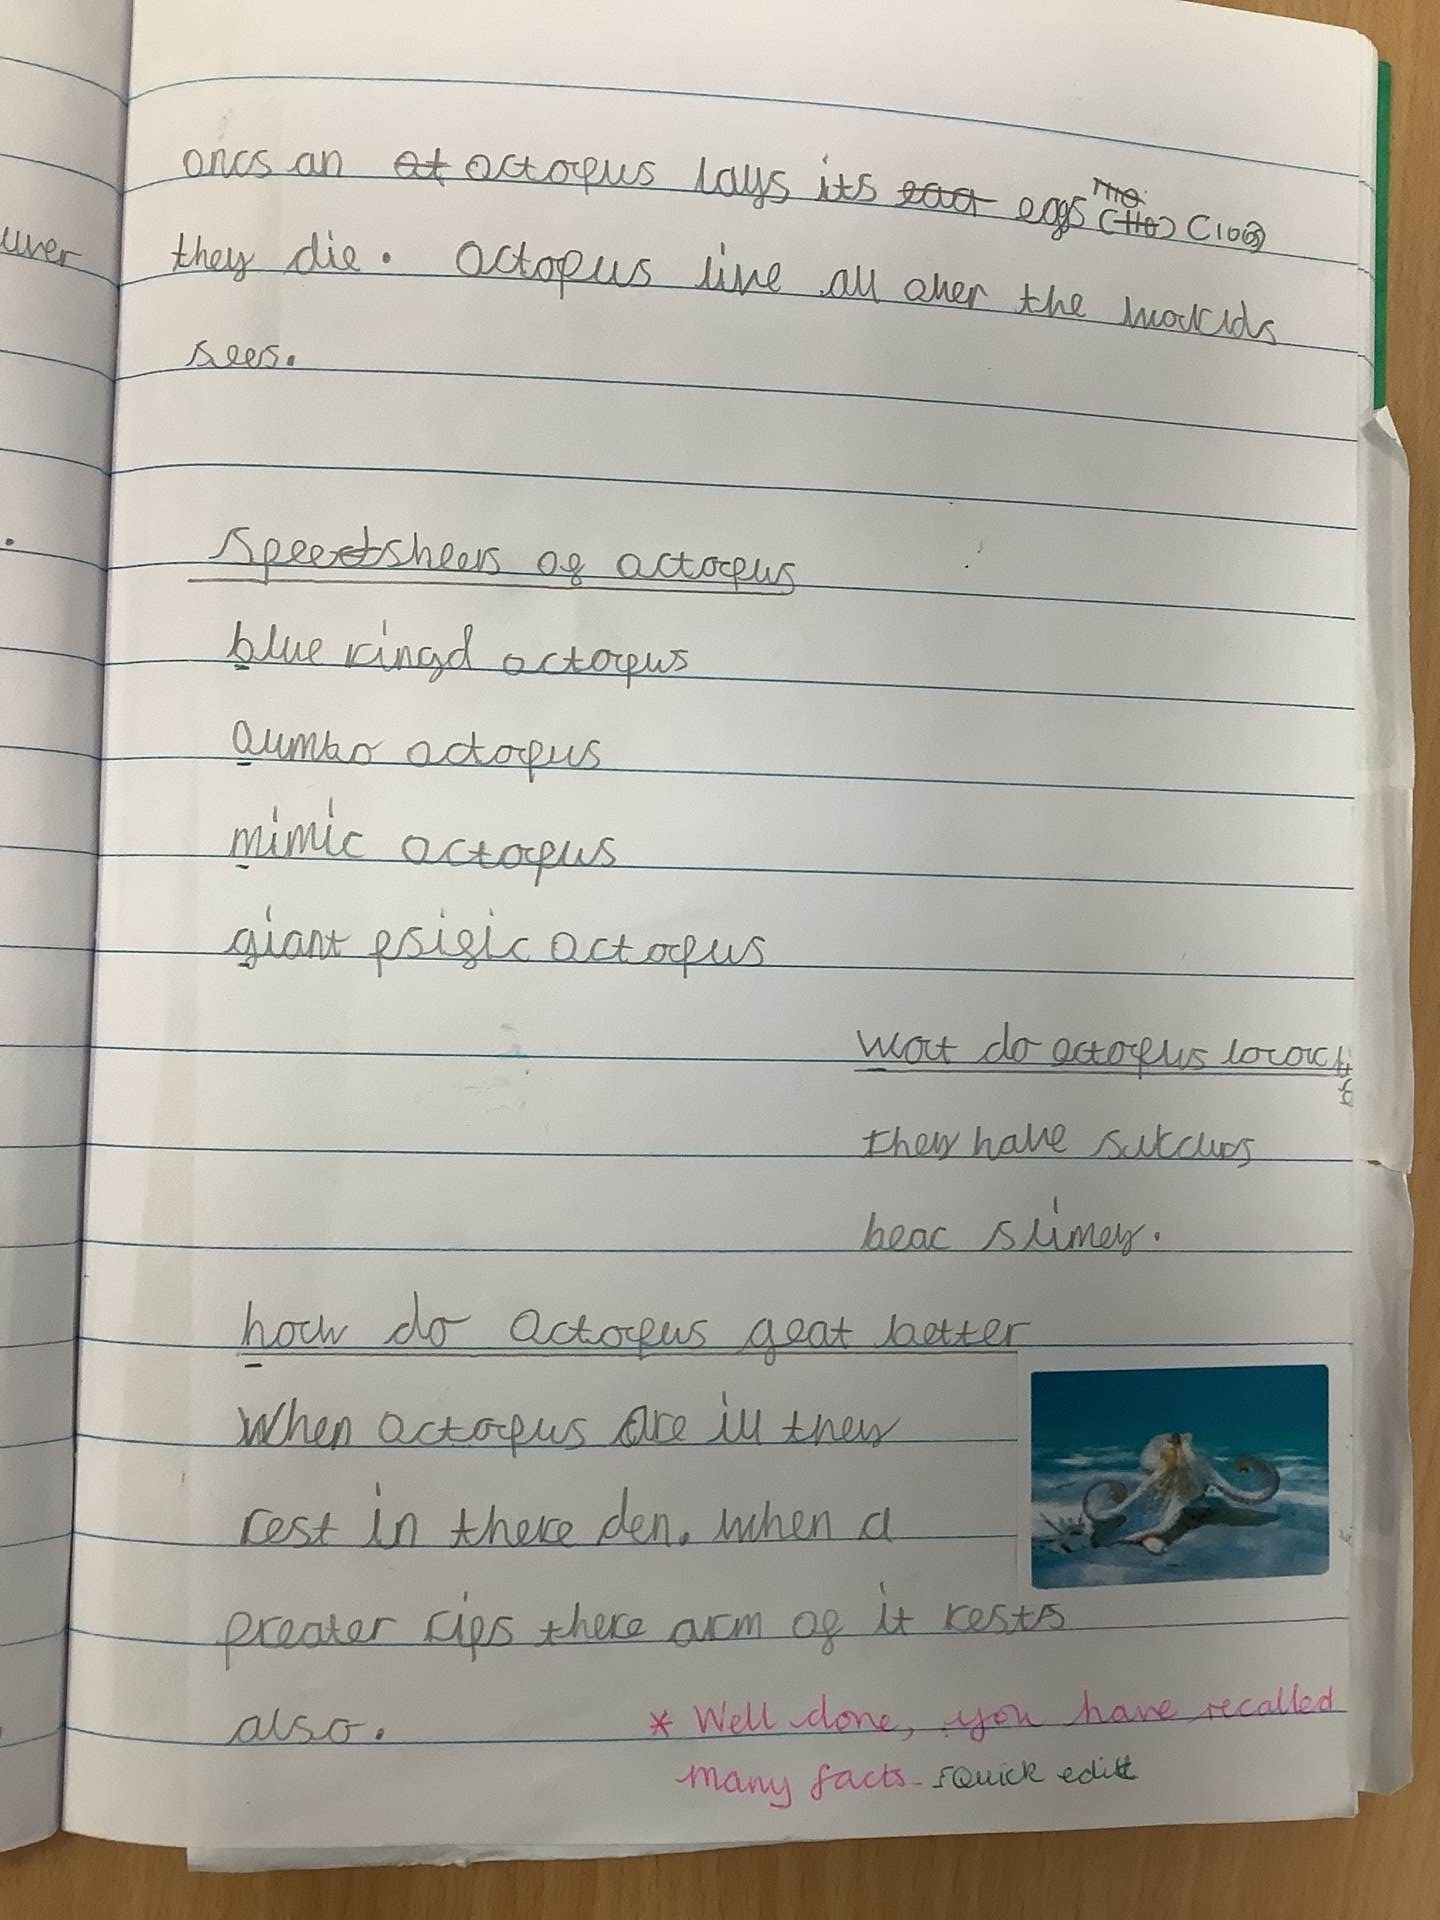 uver
oncs an ot octopus lays its eggs (100)
they die. octopus live all over the worklds
sees.
speetsheers of octopus
blue ringd octopus
dumbo octopus
mimic octopus
giant psific octopus
wot do octopus look
they have sukcurs
beac slimey.
how do octopus geat better
When octopus are ill they
rest in there den. when a
preater rips there arm of it rests
also.
* Well done, you have recalled
many facts. quick edit